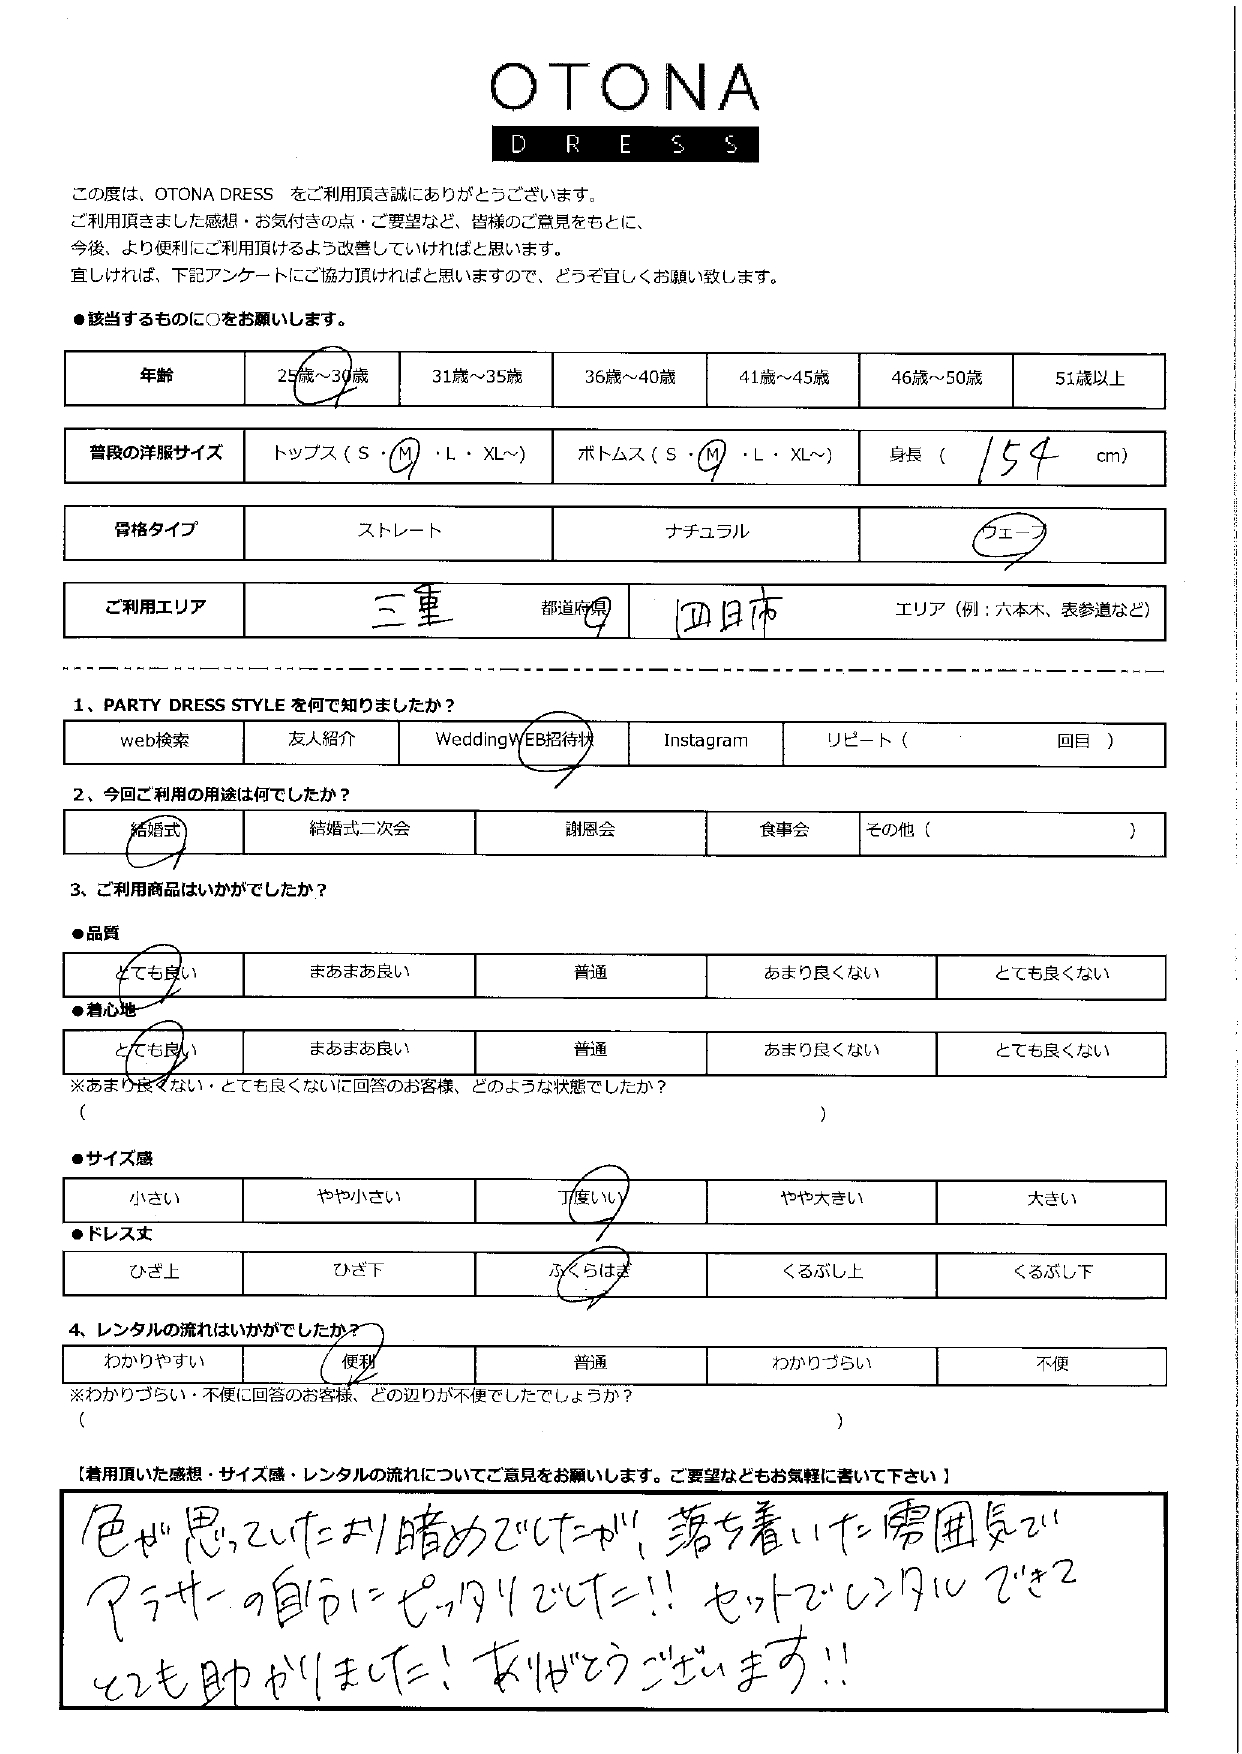 OTONA
DRESS
この度は、OTONA DRESS　をご利用頂き誠にありがとうございます。
ご利用頂きました感想・お気付きの点・ご要望など、皆様のご意見をもとに、
今後、より便利にご利用頂けるよう改善していければと思います。
宜しければ、下記アンケートにご協力頂ければと思いますので、どうぞ宜しくお願い致します。
●該当するものに○をお願いします。
年齢 25歳～30歳 31歳～35歳 36歳～40歳 41歳～45歳 46歳～50歳 51歳以上
普段の洋服サイズ トップス（ S ・ M ・ L ・ XL～） ボトムス（ S ・ M ・ L ・ XL～） 身長 （ 154 cm）
骨格タイプ ストレート ナチュラル ウェーブ
ご利用エリア 三重 都道府県 四日市 エリア（例：六本木、表参道など）
1、PARTY DRESS STYLE を何で知りましたか？
web検索 友人紹介 WeddingWEB招待状 Instagram リピート（ 回目 ）
2、今回ご利用の用途は何でしたか？
結婚式 結婚式二次会 謝恩会 食事会 その他（ ）
3、ご利用商品はいかがでしたか？
●品質
とても良い まあまあ良い 普通 あまり良くない とても良くない
●着心地
とても良い まあまあ良い 普通 あまり良くない とても良くない
※あまり良くない・とても良くないに回答のお客様、どのような状態でしたか？
（ ）
●サイズ感
小さい やや小さい 丁度いい やや大きい 大きい
●ドレス丈
ひざ上 ひざ下 ふくらはぎ くるぶし上 くるぶし下
4、レンタルの流れはいかがでしたか？
わかりやすい 便利 普通 わかりづらい 不便
※わかりづらい・不便に回答のお客様、どの辺りが不便でしたでしょうか？
（ ）
【着用頂いた感想・サイズ感・レンタルの流れについてご意見をお願いします。ご要望などもお気軽に書いて下さい】
色が思っていたより暗めでしたが、落ち着いた雰囲気で
アラサーの自分にピッタリでした!! セットでレンタルできて
とても助かりました! ありがとうございます!!